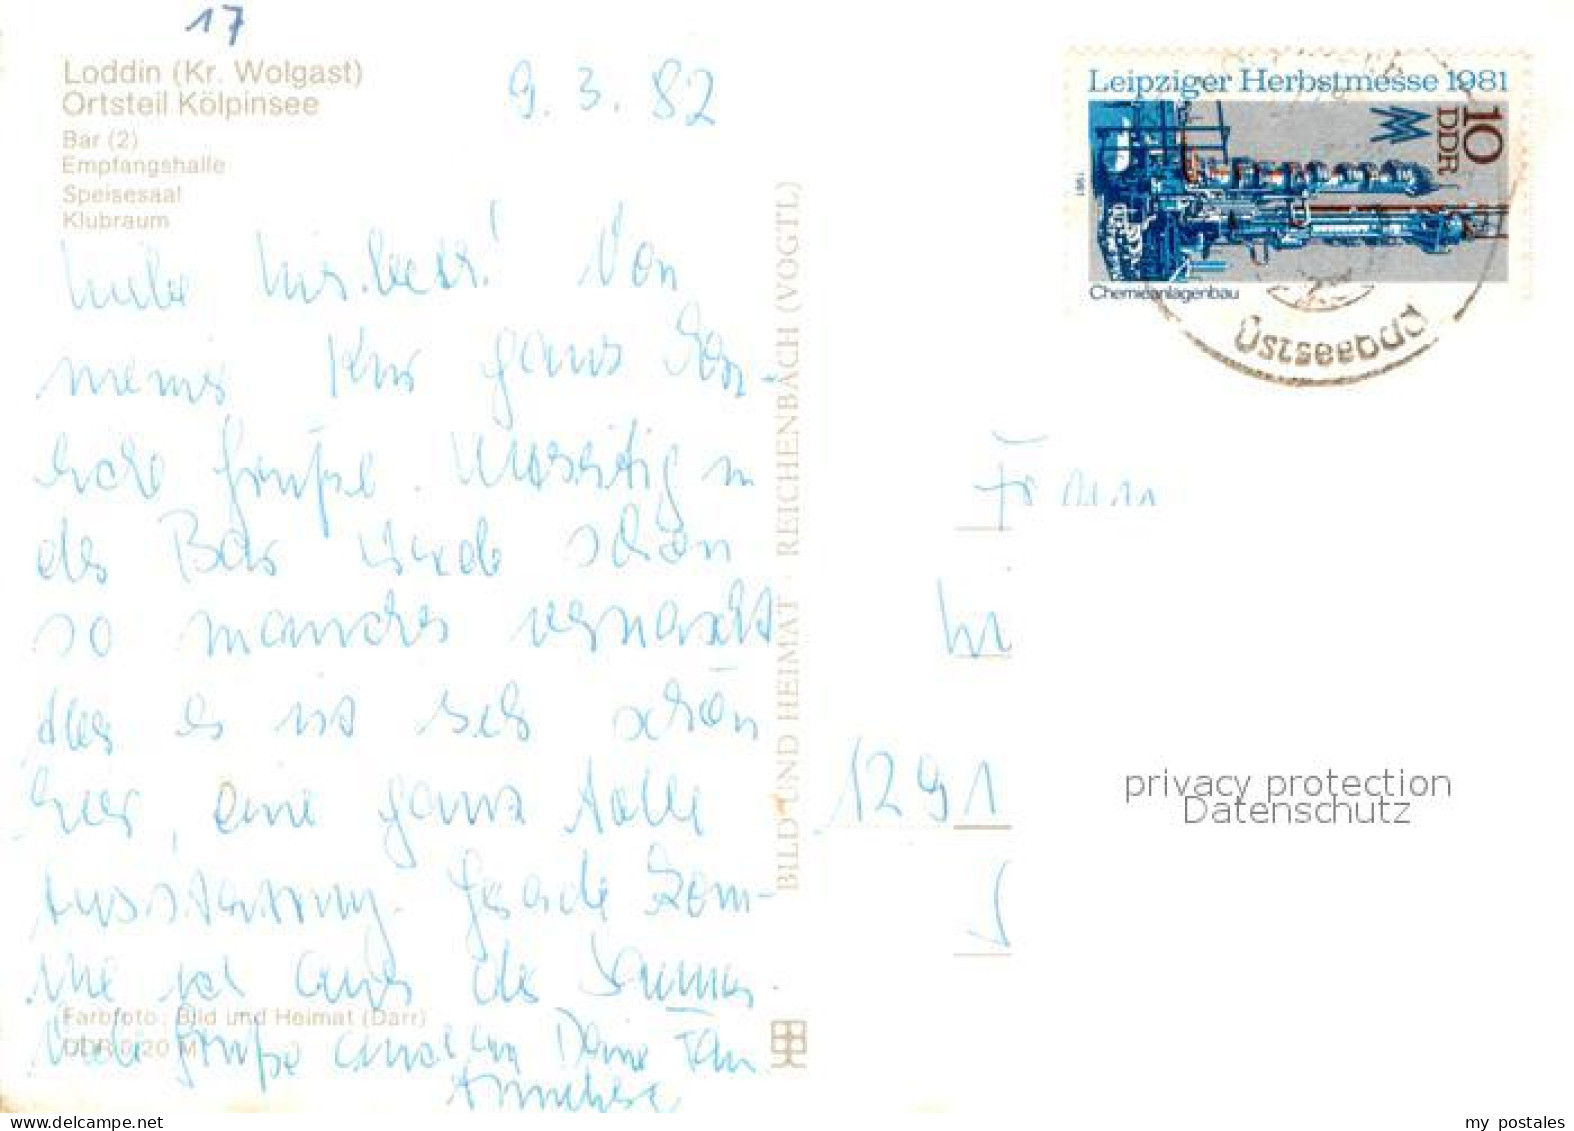 17
Loddin (Kr. Wolgast)
Ortsteil Kölpinsee
Bar (2)
Empfangshalle
Speisesaal
Klubraum
9. 3. 82
Liebe ! Von
meiner Kur ganz herz-
liche Grüße.
der Bar wurde schon
so manches vernascht
aber es ist sehr schön
hier, eine ganz tolle
Ausstattung. Gerade kom-
me ich aus der Sauna.
Viele Grüße auch an Deine
Annelise
Farbfoto: Bild und Heimat (Darr)
DDR 0,20 M
BILD UND HEIMAT · REICHENBACH (VOGTL)
Leipziger Herbstmesse 1981
10
DDR
1981
Chemieanlagenbau
Ostseebad
Frau
1291
privacy protection
Datenschutz
www.delcampe.net
my_postales